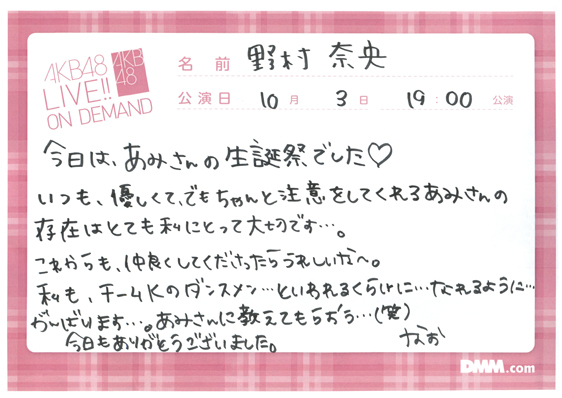 AKB48
LIVE!!
ON DEMAND
AKB
48
名前 野村 奈央
公演日 10月 3日 19:00 公演
今日は、あみさんの生誕祭でした♡
いつも、優しくて、でもちゃんと注意をしてくれるあみさんの
存在はとても私にとって大切です…。
これからも、仲良くしてくださったらうれしいなへ。
私も、チームKのダンスメン…といわれるくらいに…なれるように…
がんばります…。あみさんに教えてもらおう…(笑)
今日もありがとうございました。 なお
DMM.com